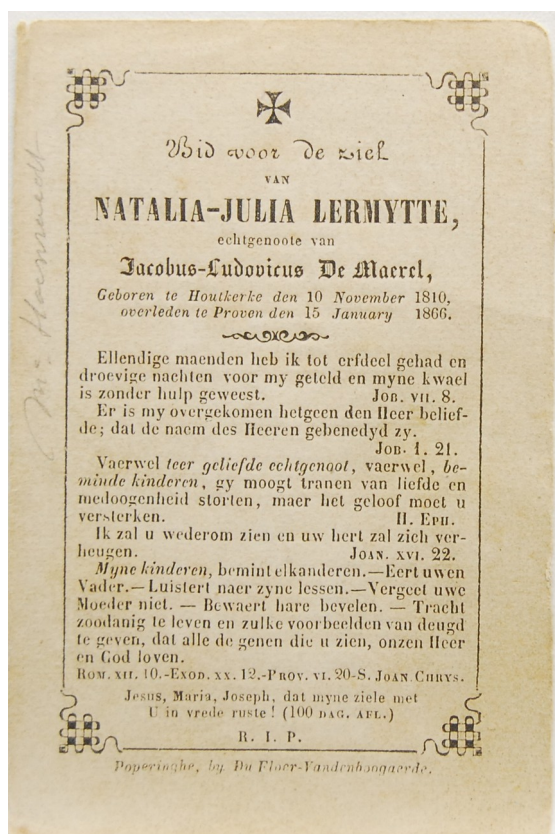 Bid voor de ziel
VAN
NATALIA-JULIA LERMYTTE,
echtgenoote van
Jacobus-Ludovicus De Maerel,
Geboren te Houtkerke den 10 November 1810,
overleden te Proven den 15 January 1866.
Ellendige maenden heb ik tot erfdeel gehad en
droevige nachten voor my geteld en myne kwael
is zonder hulp geweest. JOB. VII. 8.
Er is my overgekomen hetgeen den Heer belief-
de; dat de naem des Heeren gebenedyd zy.
JOB. 1. 21.
Vaerwel teer geliefde echtgenoot, vaerwel, be-
minde kinderen, gy moogt tranen van liefde en
medoogenheid storten, maer het geloof moet u
versterken. II. EPH.
Ik zal u wederom zien en uw hert zal zich ver-
heugen. JOAN. XVI. 22.
Myne kinderen, bemint elkanderen.—Eert uwen
Vader.—Luistert naer zyne lessen.—Vergeet uwe
Moeder niet. — Bewaert hare bevelen. — Tracht
zoodanig te leven en zulke voorbeelden van deugd
te geven, dat alle de genen die u zien, onzen Heer
en God loven.
ROM. XII. 10.-EXOD. XX. 12.-PROV. VI. 20-S. JOAN. CHRYS.
Jesus, Maria, Joseph, dat myne ziele met
U in vrede ruste! (100 DAG. AFL.)
R. I. P.
Poperinghe, by Du Flocr-Vandenhoogaerde.